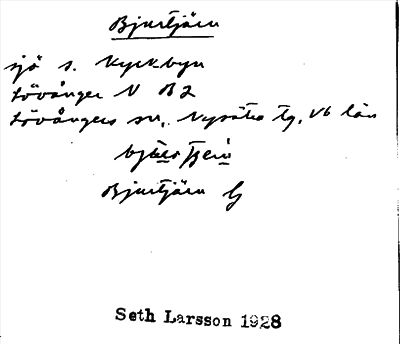 Bjurtjärn
sjö s. Kyrkbyn
Lövånger N B2
Lövångers sn, Nysätra tg, Vb län
Bjurtjärn G
Seth Larsson 1928